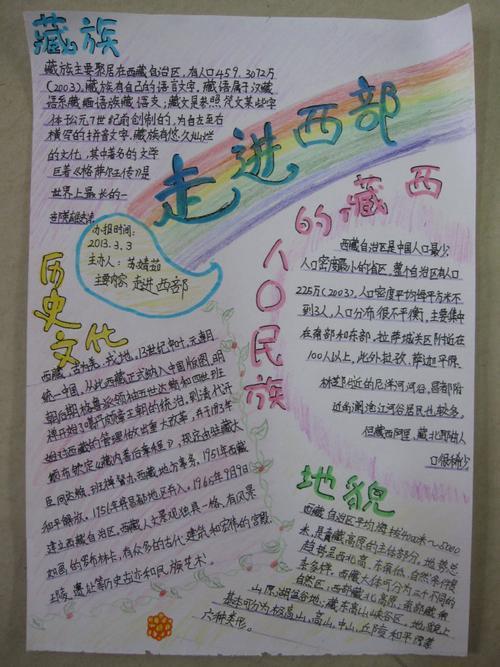 藏族
藏族主要聚居在西藏自治区,有人口459.3072万
(2003),藏族有自己的语言文字,藏语属于汉藏
语系藏缅语族藏语支;藏文是参照梵文某些字
体于公元7世纪前创制的,为自左至右
横写的拼音文字,藏族有悠久灿烂
的文化,其中著名的文学
巨著《格萨尔王传》是
世界上最长的一
走进西部
办报时间:
2013.3.3
主办人:苏婧茹
主要内容:走进西部
历史文化
西藏,古为羌、戎地,13世纪中叶,元朝
统一中国,从此西藏正式纳入中国版图,明
朝后期,格鲁派领袖五世达赖和四世班
得开始了噶丹颇章王朝的统治,到清代开
始对西藏的管理做出重大改革,并于1793年
颁布钦定《藏内善后章程》,规定由驻藏大
臣同达赖、班禅督办西藏地方事务,1951年西藏
和平解放。1956年将昌都地区并入,1965年9月9日
建立西藏自治区,西藏人文景观独具一格,有风景
如画的罗布林卡,有众多的古代建筑和宏伟的宫殿、
王陵、遗址等历史古迹和民族艺术!
西藏的
人口民族
西藏自治区是中国人口最少、
人口密度最小的省区,整个自治区有人口
225万(2003),人口密度平均每平方米不
到3人,人口分布很不平衡,主要集中
在南部和东部,拉萨城关区附近在
100人以上,此外拉孜、萨迦平原、
林芝附近的尼洋河河谷、昌都附
近的澜沧江河谷居民也较多。
但藏西阿里、藏北那曲人
口很稀少
地貌
西藏自治区平均海拔4000米~5000
米,是青藏高原的主体部分,地势总
趋势是西北高、东南低,自然条件复
杂多样。西藏大体可分为三个不同的
自然区,西部高原,藏北高原,南部藏南
山原、湖盆谷地,藏东高山峡谷区,地貌上
基本可分为极高山、高山、中山、丘陵和平原等
六种类形。